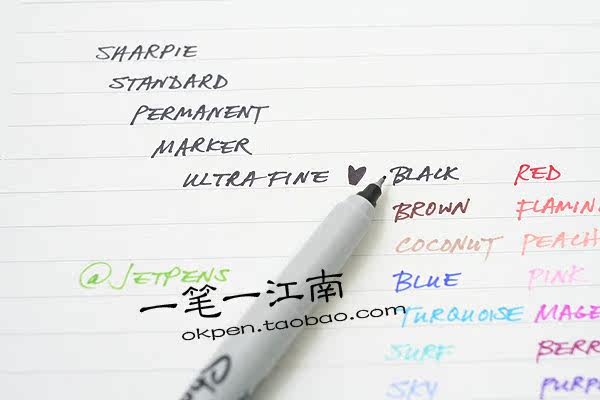 SHARPIE
STANDARD
PERMANENT
MARKER
ULTRA FINE ♥
BLACK RED
BROWN FLAMIN
COCONUT PEACH
BLUE PINK
TURQUOISE MAGE
SURF BERR
SKY PURP
@JETPENS
一笔一江南
okpen.taobao.com